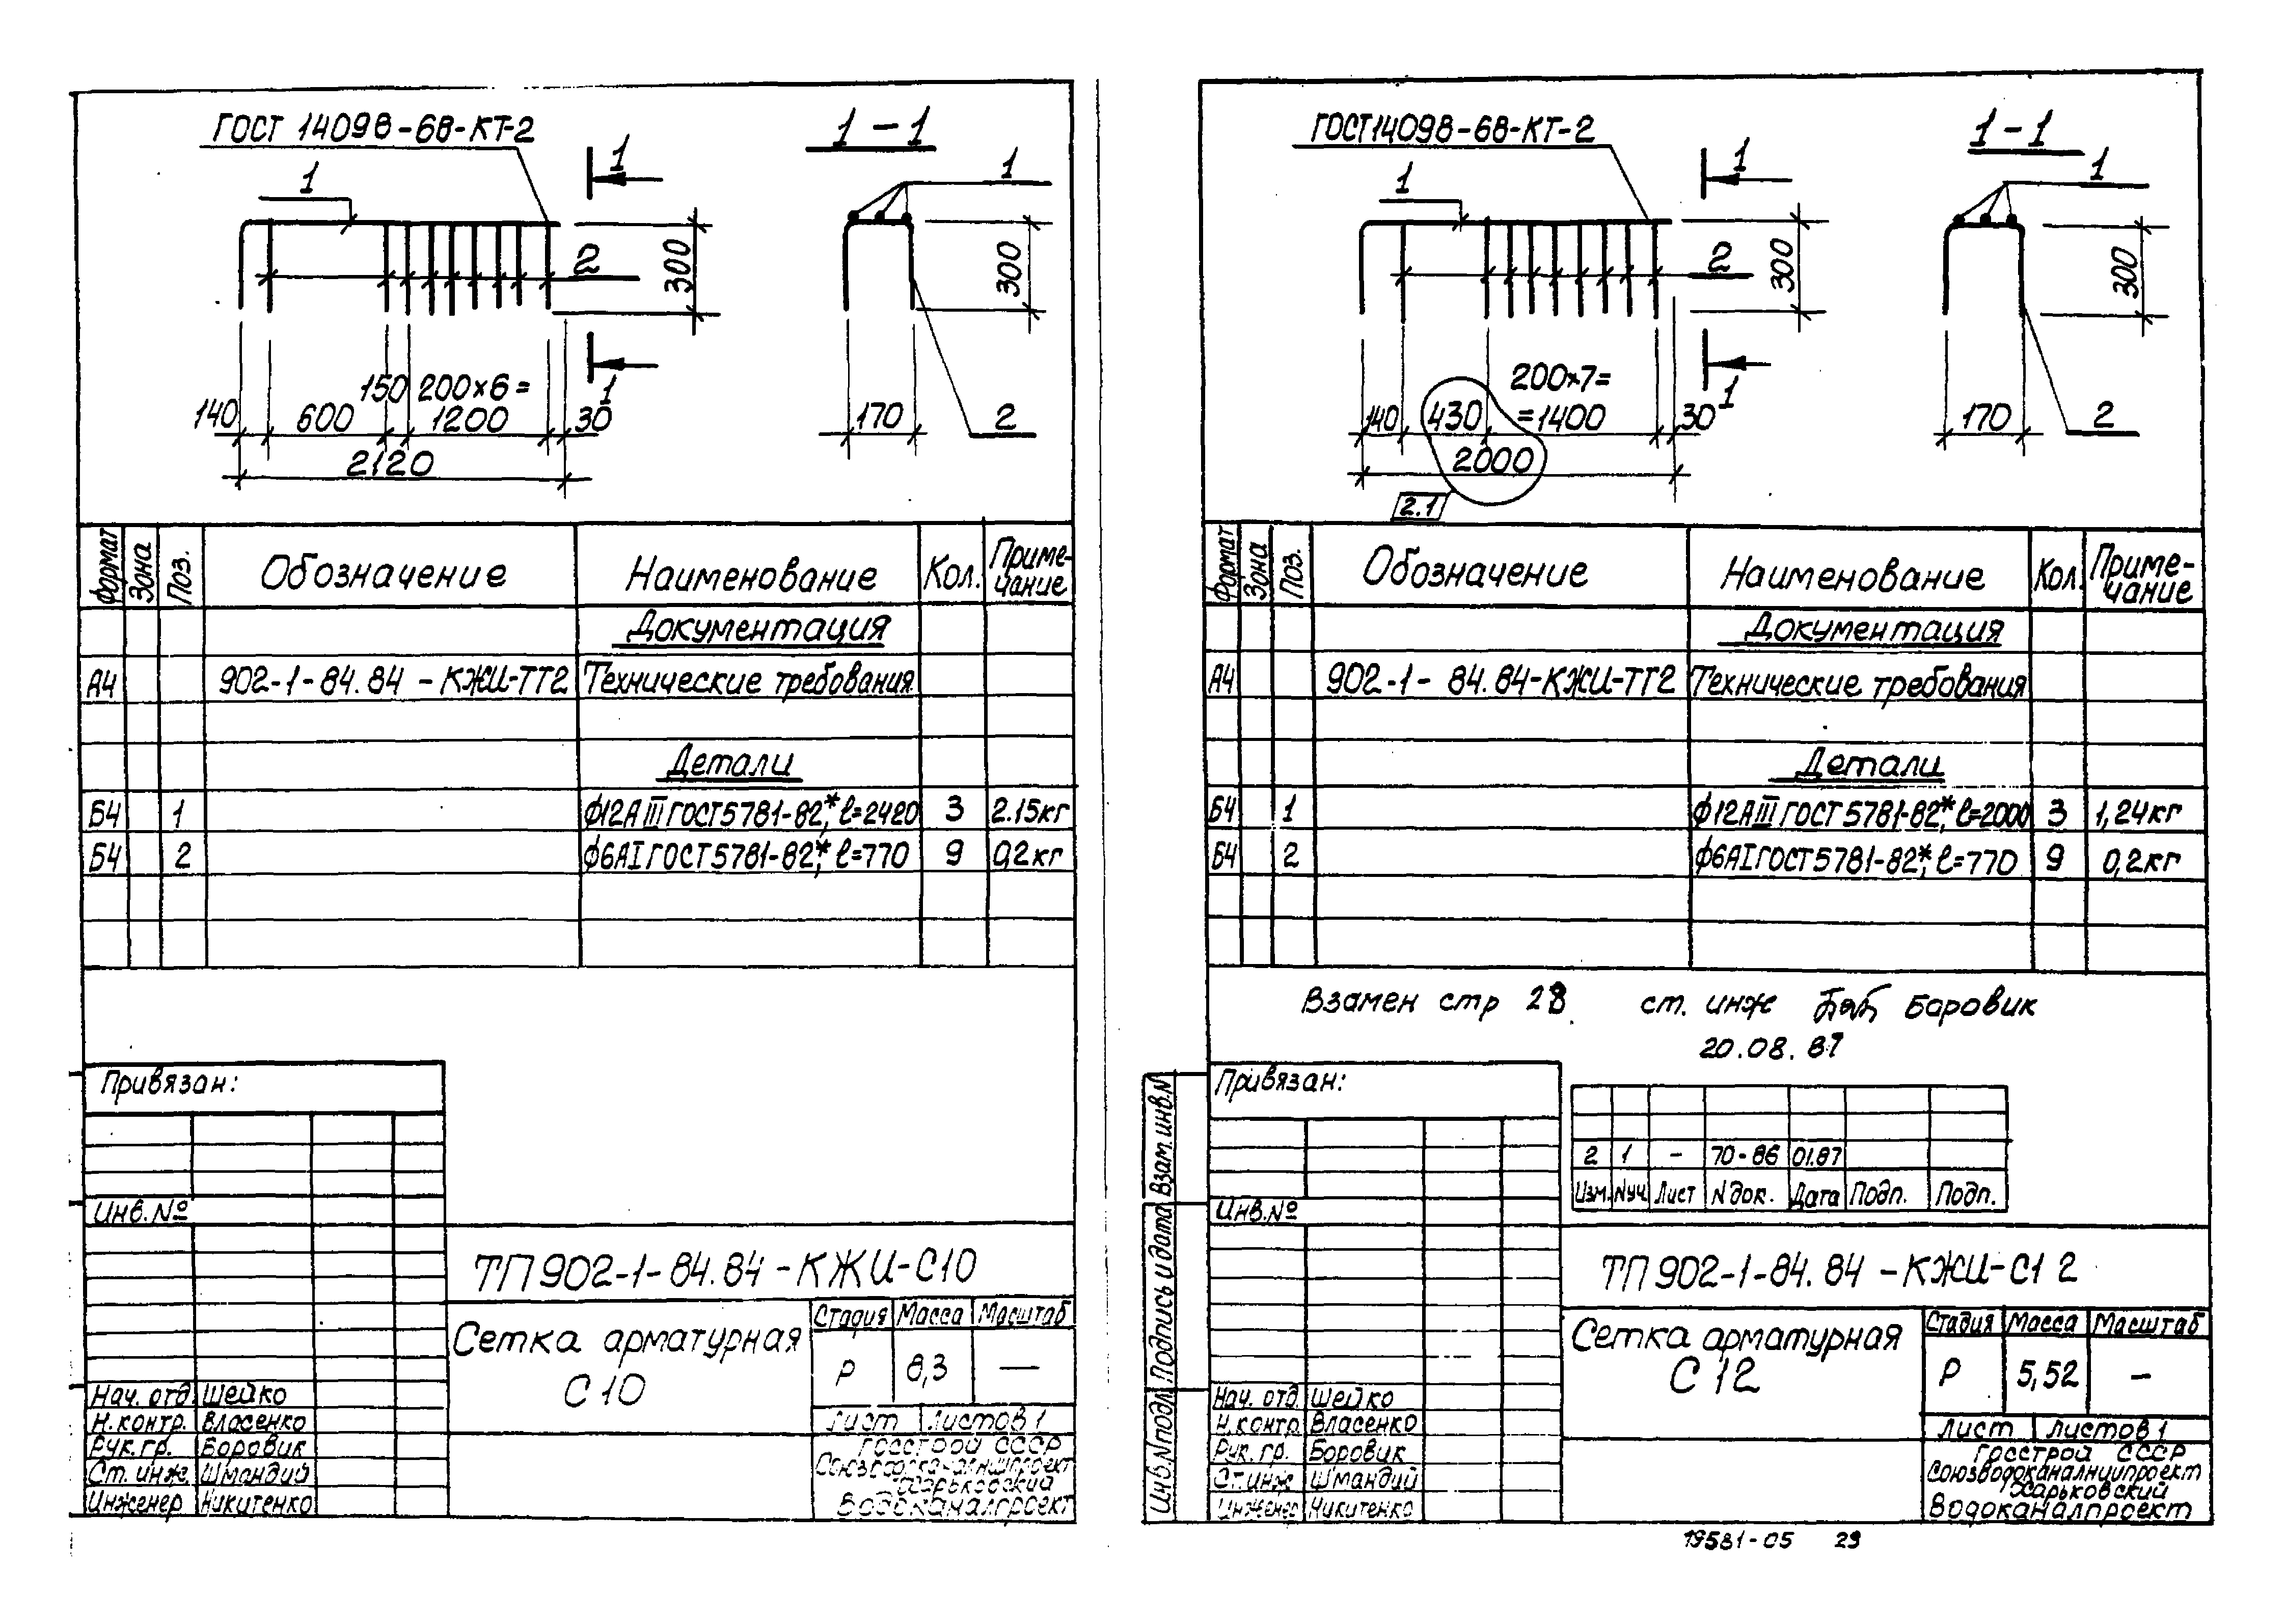 ГОСТ 14098-68-КТ-2
1-1
1
1
1
2
300
300
150 200х6=
1
140 600 1200 30
170
2
2120
Формат Зона Поз. Обозначение Наименование Кол. Приме-
чание
Документация
А4 902-1-84.84-КЖИ-ТТ2 Технические требования
Детали
Б4 1 ф12АIII ГОСТ5781-82,* ℓ=2420 3 2.15кг
Б4 2 ф6АI ГОСТ5781-82,* ℓ=770 9 0,2кг
Привязан:
Инв.№
ТП902-1-84.84-КЖИ-С10
Сетка арматурная
С10
Стадия Масса Масштаб
Р 8,3 —
Лист Листов 1
Госстрой СССР
Харьковский
Водоканалпроект
Нач. отд Шейко
Н.контр. Власенко
Рук.гр. Боровик
Ст.инж. Шмандий
Инженер Никитенко
ГОСТ14098-68-КТ-2
1-1
1
1
1
2
300
300
200х7=
1
140 430 =1400 30
170
2
2000
2.1
Формат Зона Поз. Обозначение Наименование Кол. Приме-
чание
Документация
А4 902-1-84.84-КЖИ-ТТ2 Технические требования
Детали
Б4 1 ф12АIII ГОСТ5781-82,* ℓ=2000 3 1,24кг
Б4 2 ф6АI ГОСТ5781-82,* ℓ=770 9 0,2кг
Взамен стр 28 ст. инж Боровик
20.08.87
Привязан:
Инв.№
2 1 - 70-86 01.87
Изм. Nуч. Лист Nдок. Дата Подп. Подп.
ТП902-1-84.84-КЖИ-С12
Сетка арматурная
С12
Стадия Масса Масштаб
Р 5,52 —
Лист Листов 1
Госстрой СССР
Союзводоканалниипроект
Харьковский
Водоканалпроект
Нач. отд. Шейко
Н.контр. Власенко
Рук.гр. Боровик
Ст.инж. Шмандий
Инженер Никитенко
Инв.Nподл. Подпись и дата Взам.инв.N
19581-05 29